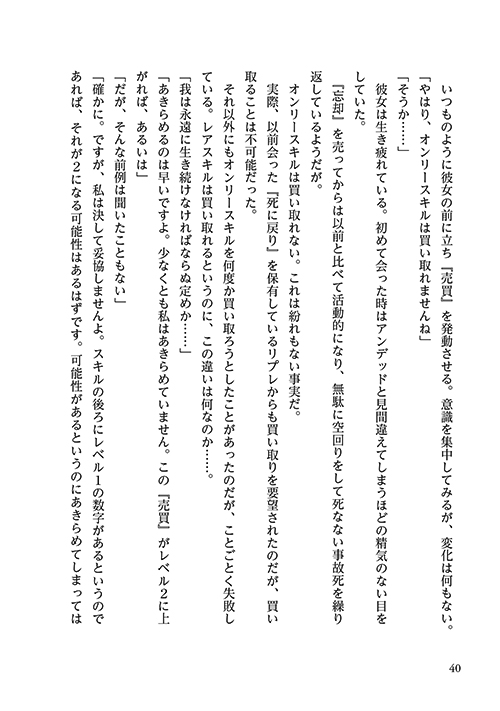 いつものように彼女の前に立ち『売買』を発動させる。意識を集中してみるが、変化は何もない。
「やはり、オンリースキルは買い取れませんね」
「そうか……」
　彼女は生き疲れている。初めて会った時はアンデッドと見間違えてしまうほどの精気のない目を
していた。
　『忘却』を売ってからは以前と比べて活動的になり、無駄に空回りをして死なない事故死を繰り
返しているようだが。
　オンリースキルは買い取れない。これは紛れもない事実だ。
　実際、以前会った『死に戻り』を保有しているリプレからも買い取りを要望されたのだが、買い
取ることは不可能だった。
　それ以外にもオンリースキルを何度か買い取ろうとしたことがあったのだが、ことごとく失敗し
ている。レアスキルは買い取れるというのに、この違いは何なのか……。
「我は永遠に生き続けなければならぬ定めか……」
「あきらめるのは早いですよ。少なくとも私はあきらめていません。この『売買』がレベル２に上
がれば、あるいは」
「だが、そんな前例は聞いたこともない」
「確かに。ですが、私は決して妥協しませんよ。スキルの後ろにレベル１の数字があるというので
あれば、それが２になる可能性はあるはずです。可能性があるというのにあきらめてしまっては
40